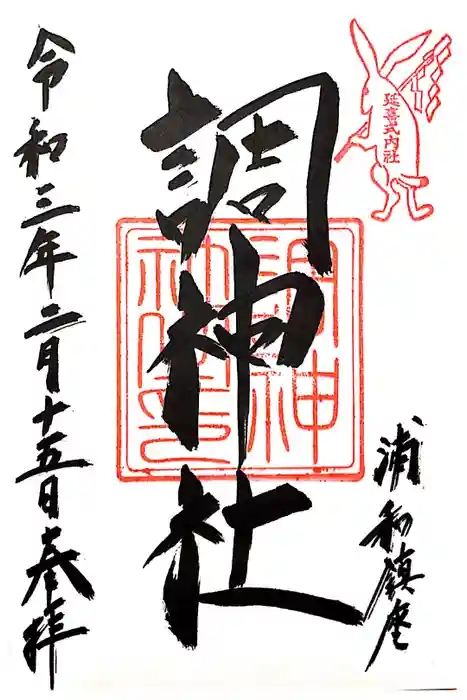 延喜式内社
浦和鎮座
調神社
調神社印
令和三年二月十五日奉拝